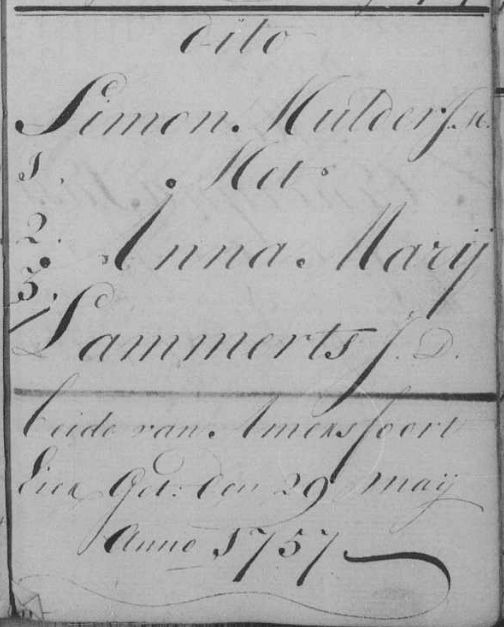 dito
Simon Mulder J.M.
Met
1. 2. 3. Anna Marij
Lammerts J. D.
beide van Amersfoort
Get: den 29 maij
Anno 1757